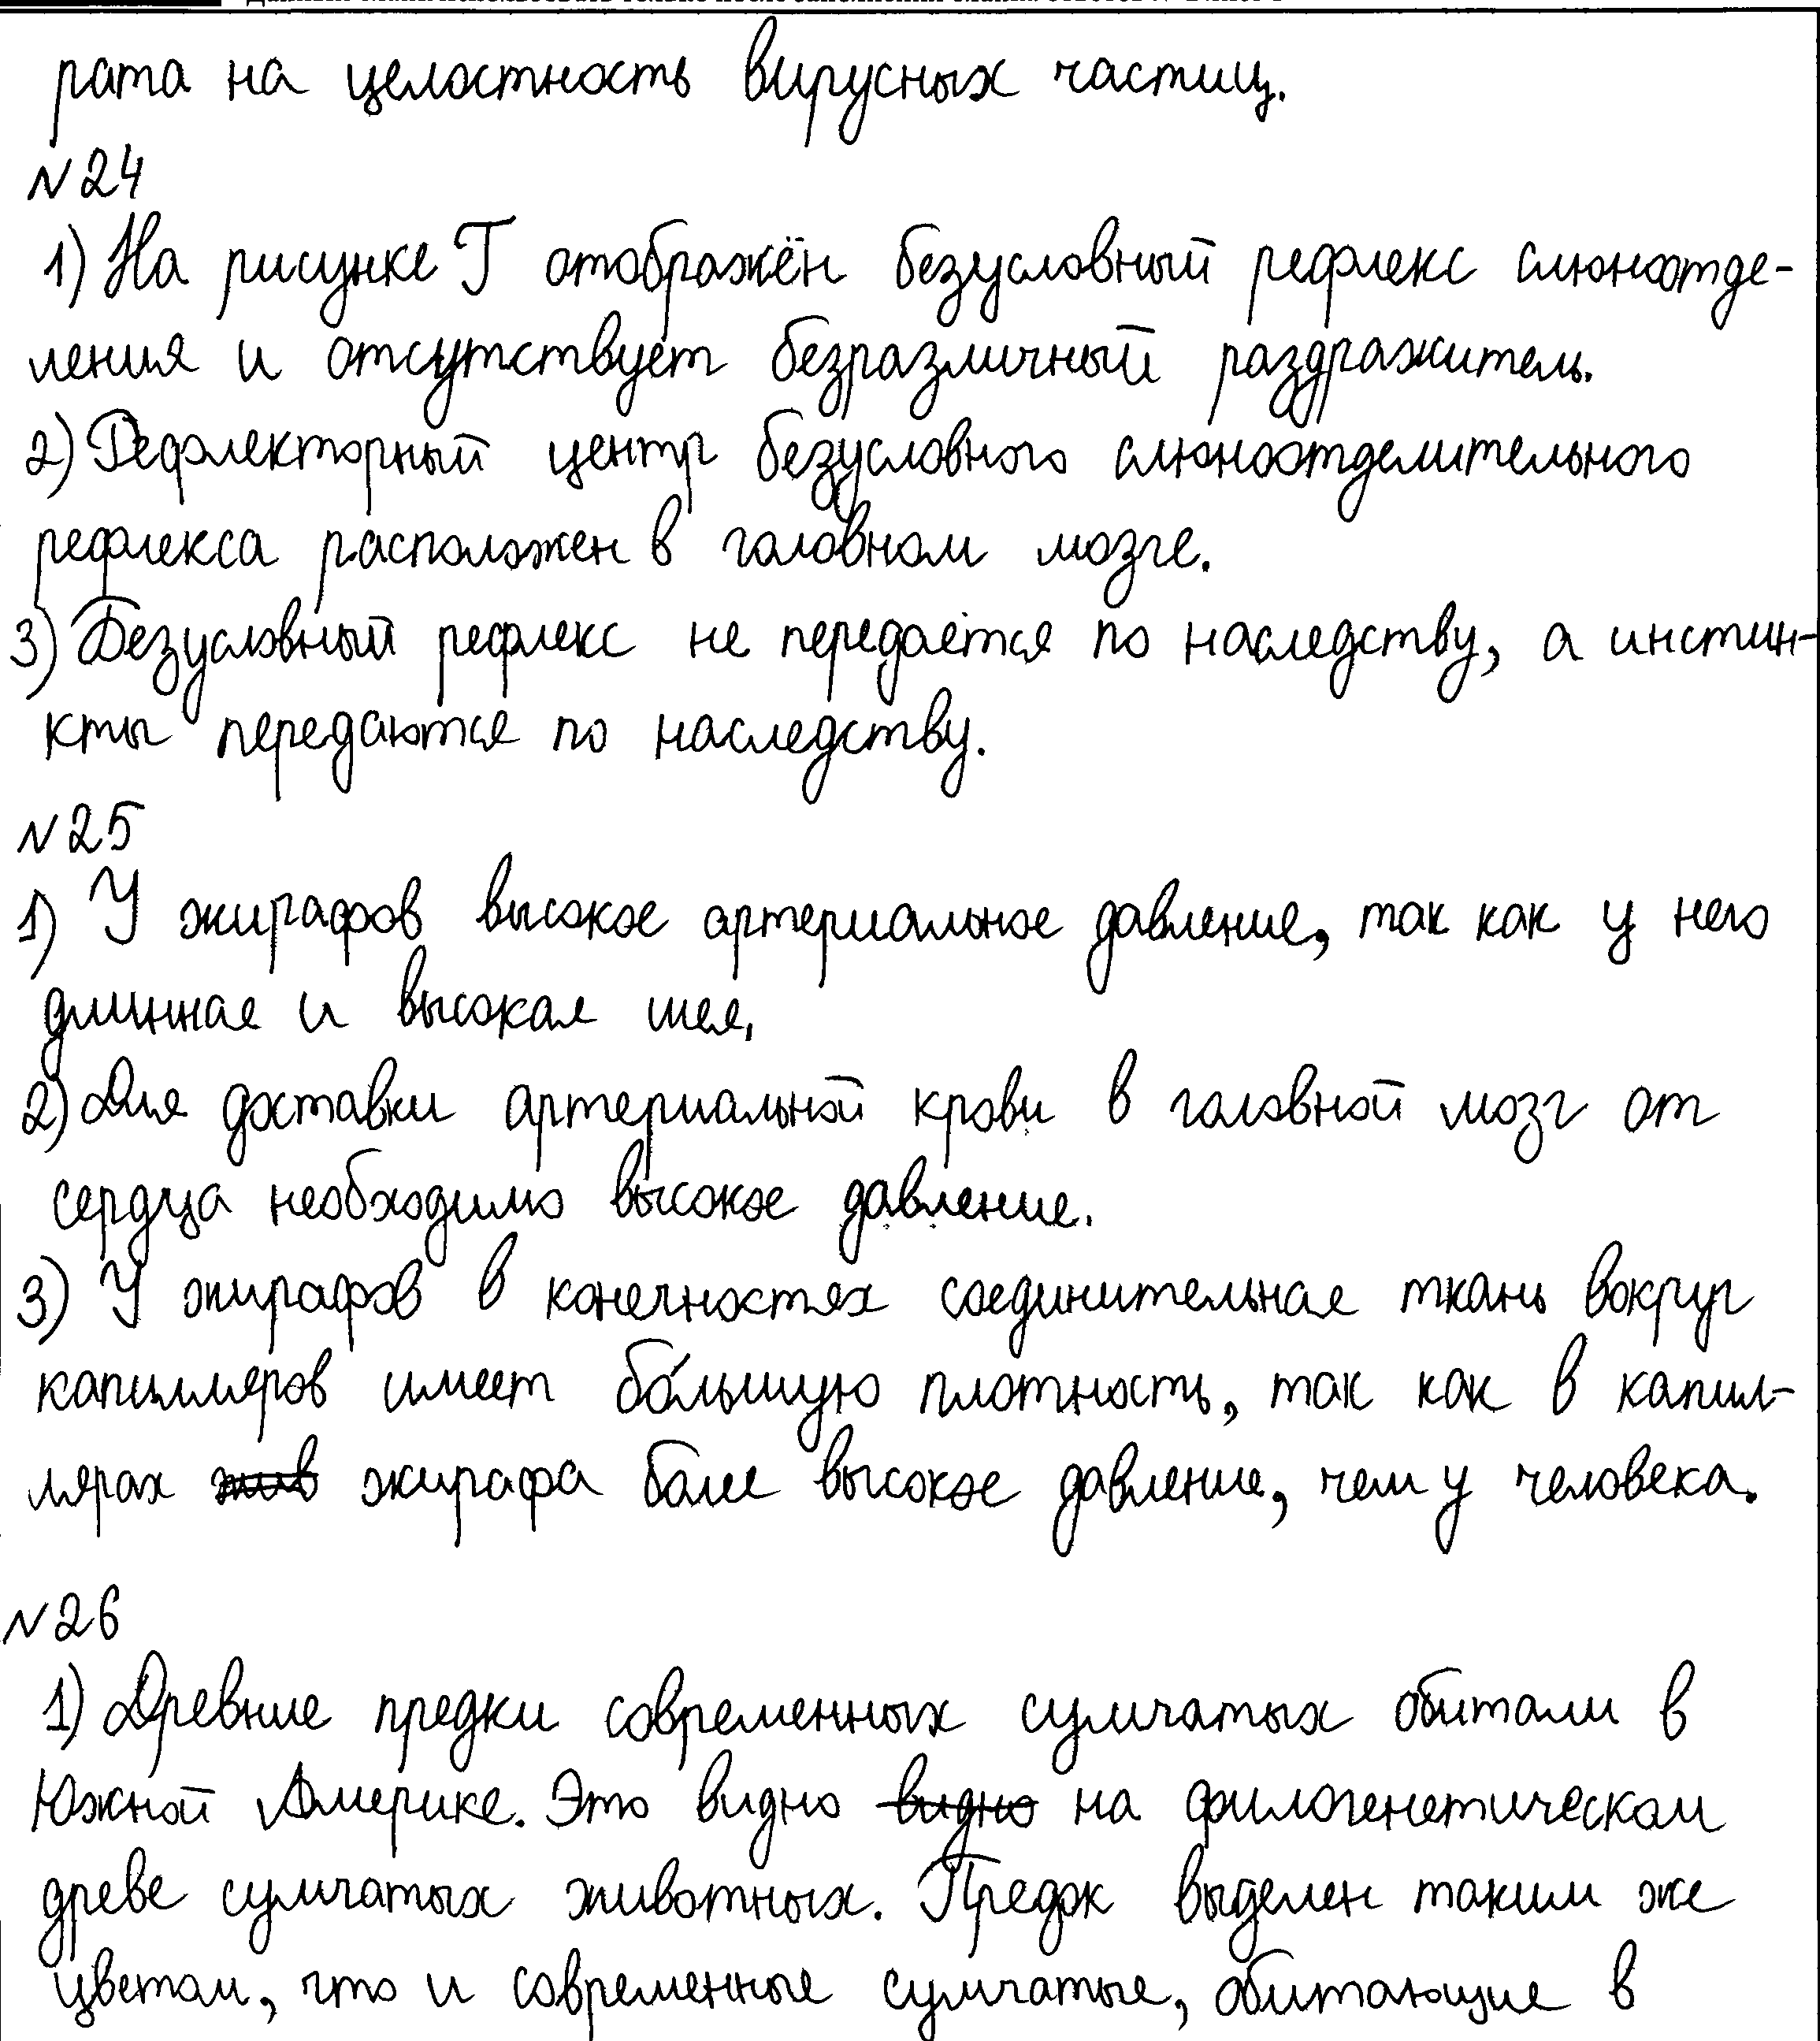 рата на целостность вирусных частиц.
№24
1) На рисунке Г отображён безусловный рефлекс слюноотде-
ления и отсутствует безразличный раздражитель.
2) Рефлекторный центр безусловного слюноотделительного
рефлекса расположен в головном мозге.
3) Безусловный рефлекс не передаётся по наследству, а инстин-
кты передаются по наследству.
№25
1) У жирафов высокое артериальное давление, так как у него
длинная и высокая шея.
2) Для доставки артериальной крови в головной мозг от
сердца необходимо высокое давление.
3) У жирафов в конечностях соединительная ткань вокруг
капилляров имеет бо́льшую плотность, так как в капил-
лярах жив жирафа более высокое давление, чем у человека.
№26
1) Древние предки современных сумчатых обитали в
Южной Америке. Это видно видно на филогенетическом
древе сумчатых животных. Предок выделен таким же
цветом, что и современные сумчатые, обитающие в